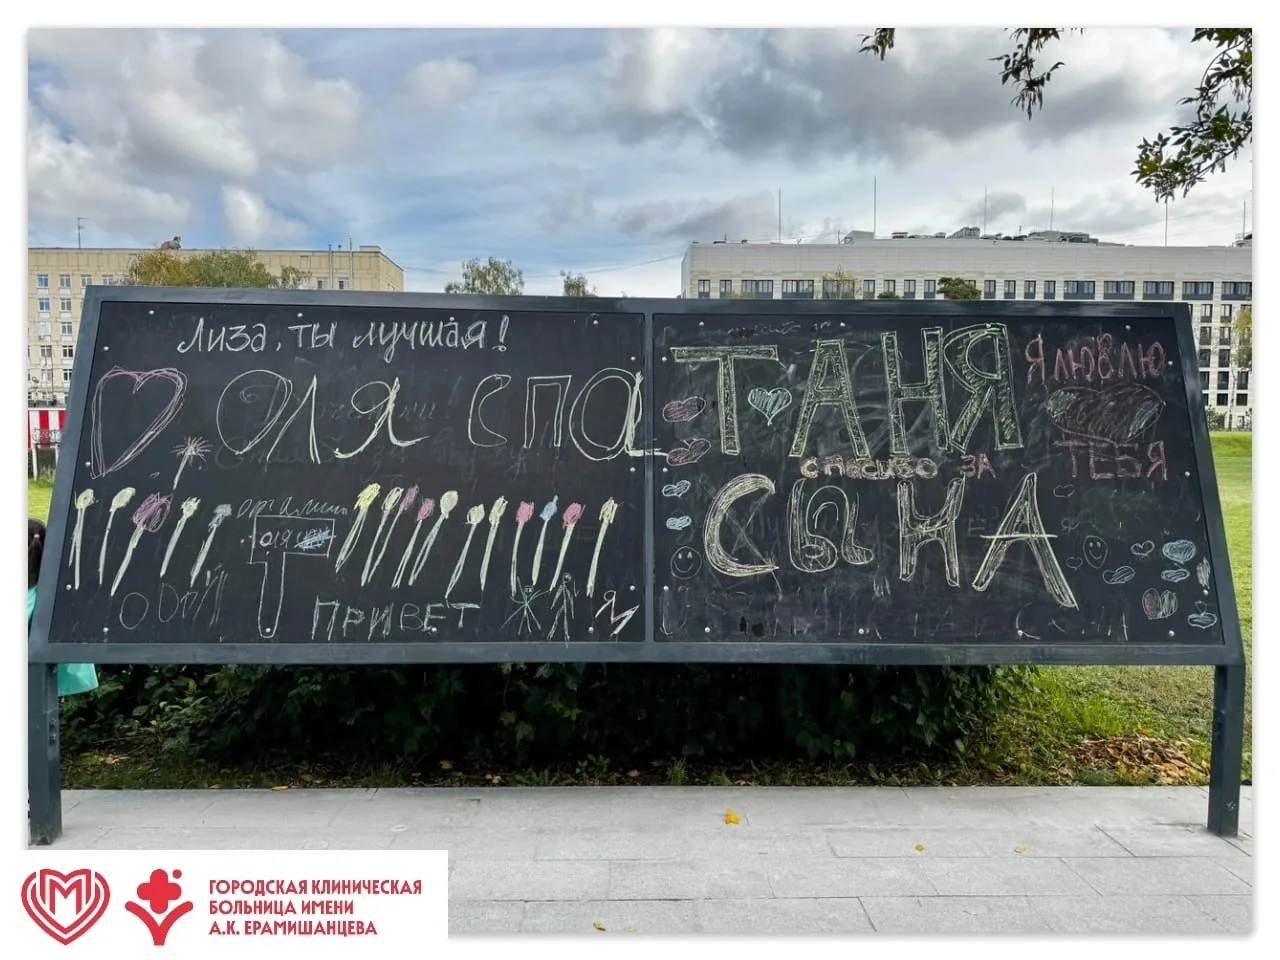 Лиза, ты лучшая!
ОЛЯ СПА
ОЛЯ
ПРИВЕТ
ТАНЯ
СПАСИБО ЗА
СЫНА
Я ЛЮБЛЮ
ТЕБЯ
ГОРОДСКАЯ КЛИНИЧЕСКАЯ
БОЛЬНИЦА ИМЕНИ
А.К. ЕРАМИШАНЦЕВА